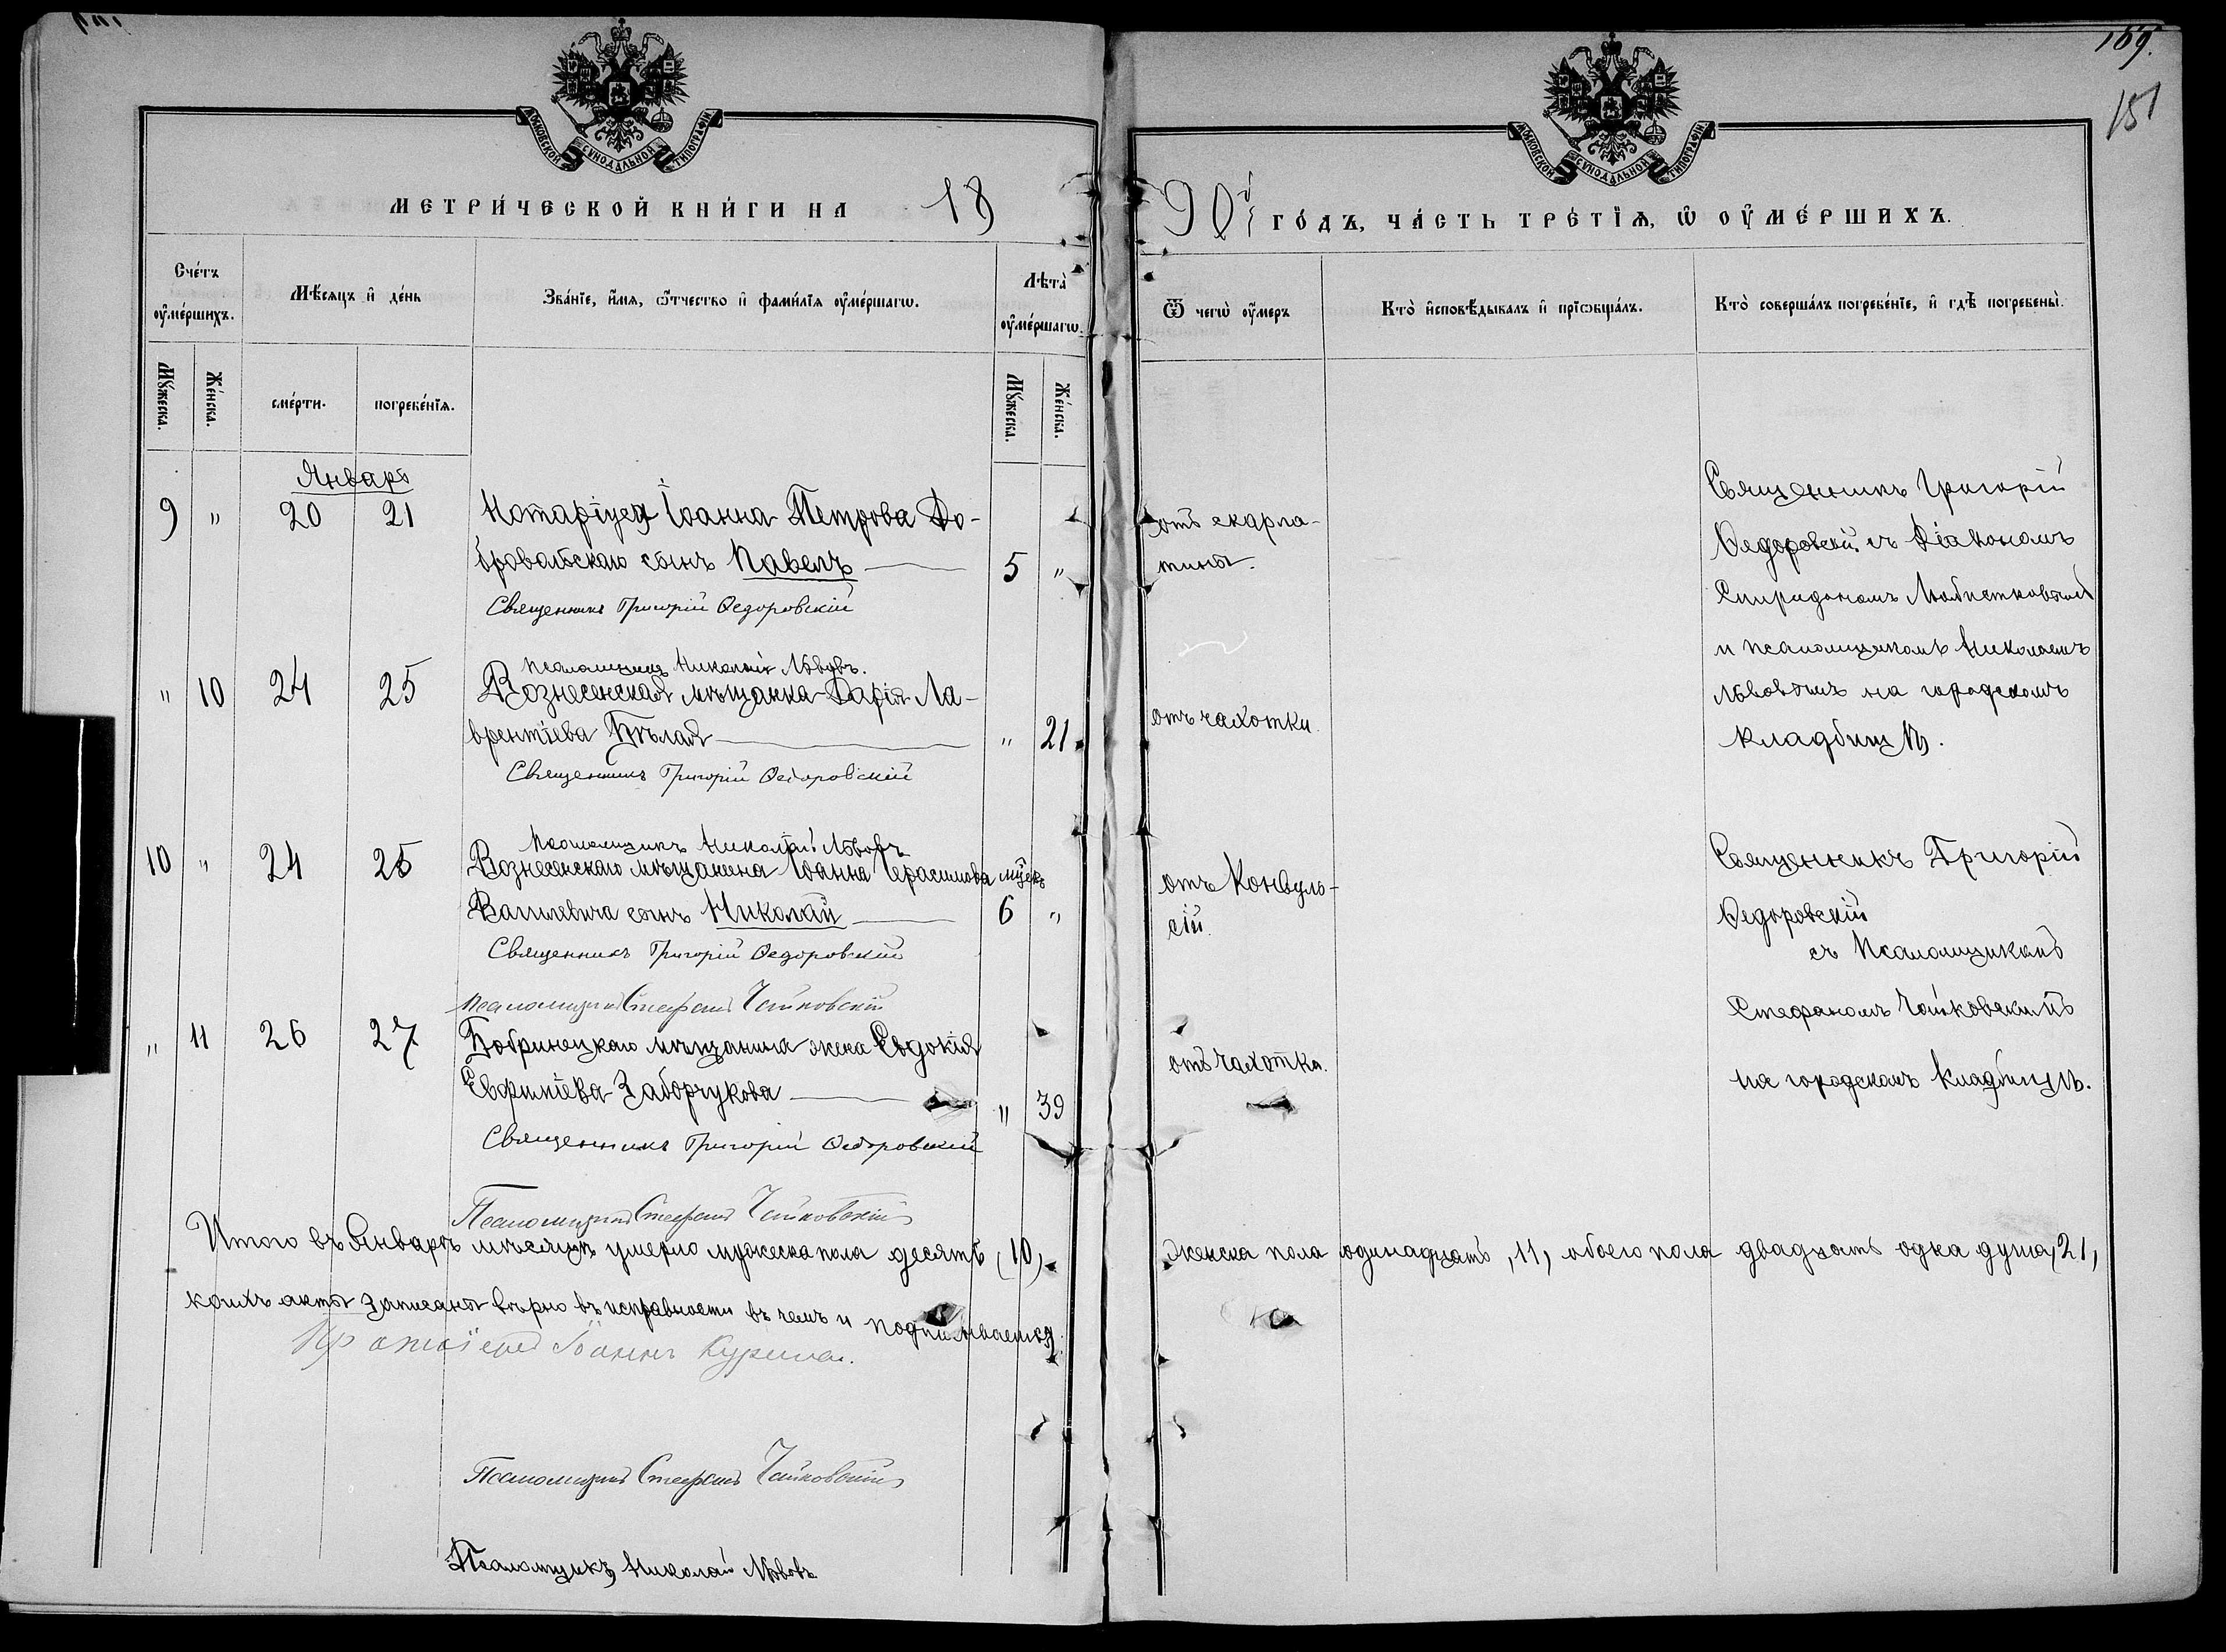 159.
151
МОСКОВСКОЙ СУНОДАЛЬНОЙ ТИПОГРАФІИ
МОСКОВСКОЙ СУНОДАЛЬНОЙ ТИПОГРАФІИ
МЕТРИ́ЧЕСКОЙ КНИ́ГИ НА 18
90й ГО́ДЪ, ЧА́СТЬ ТРЕ́ТЇѦ, Ѡ ОУ҆МЕ́РШИХЪ.
Сче́тъ оу҆ме́ршихъ.
Мѣ́сяцъ и҆ де́нь
Зва́нїе, и҆́мя, ѻ҆́тчество и҆ фами́лїя оу҆ме́ршагѡ.
Лѣта̀ оу҆ме́ршагѡ.
Ѿ чегѡ̀ оу҆́меръ
Кто̀ и҆сповѣ́дывалъ и҆ прїѡбща́лъ.
Кто̀ соверша́лъ погребе́нїе, и҆ гдѣ̀ погребены̀.
Мꙋ́жеска.
Же́нска.
сме́рти.
погребе́нїя.
Мꙋ́жеска.
Же́нска.
Январь
9 " 20 21 Нотаріуса Іоанна Петрова До-
бровальскаго сынъ Павелъ 5 "
Священникъ Григорій Ѳедоровскій
отъ скарла-
тины.
Священникъ Григорій
Ѳедоровскій съ Діакономъ
Спиридономъ
и псаломщикомъ Николаемъ
Львовымъ на городскомъ
кладбищѣ.
Псаломщикъ Николай Львовъ.
" 10 24 25 Вознесенская мѣщанка Дарія Ла-
врентіева Бѣлая " 21
Священникъ Григорій Ѳедоровскій
отъ чахотки.
Псаломщикъ Николай Львовъ
10 " 24 25 Вознесенскаго мѣщанина Іоанна Герасимова мѣсяц.
Василевича сынъ Николай 6 "
Священникъ Григорій Ѳедоровскій
отъ Конвуль-
сій.
Священникъ Григорій
Ѳедоровскій
съ Псаломщикомъ
Стефаномъ Чайковскимъ
на городскомъ кладбищѣ.
Псаломщикъ Стефанъ Чайковскій
" 11 26 27 Бобринецкаго мѣщанина жена Евдокія
Евфиміева Заборчукова " 39
Священникъ Григорій Ѳедоровскій
отъ чахотки.
Псаломщикъ Стефанъ Чайковскій
Итого въ Январѣ мѣсяцѣ умерло мужеска пола десять (10).
женска пола одинадцать, 11, обоего пола двадцать одна душа, 21,
коихъ акты записаны вѣрно въ исправности въ чемъ и подписываемся.
Протоіерей Іоаннъ
Псаломщикъ Стефанъ Чайковскій
Псаломщикъ Николай Львовъ